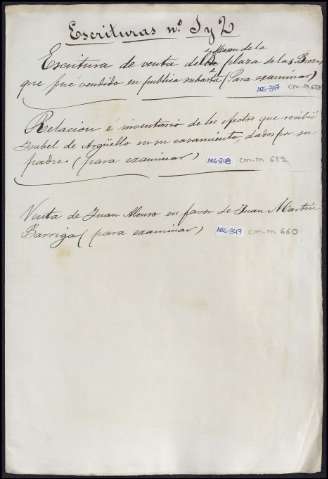 Escrituras nº 1 y 2
Escritura de venta de la plaza de las
que fué vendido en publica subasta (Para examinar)
Relacion é inventario de los efectos que recibió
Isabel de Argüello en su casamiento, dados por su
padre (para examinar) cm.m 659
Venta de Juan Alonso en favor de Juan Martin
Barriga (para examinar) cm.m 660